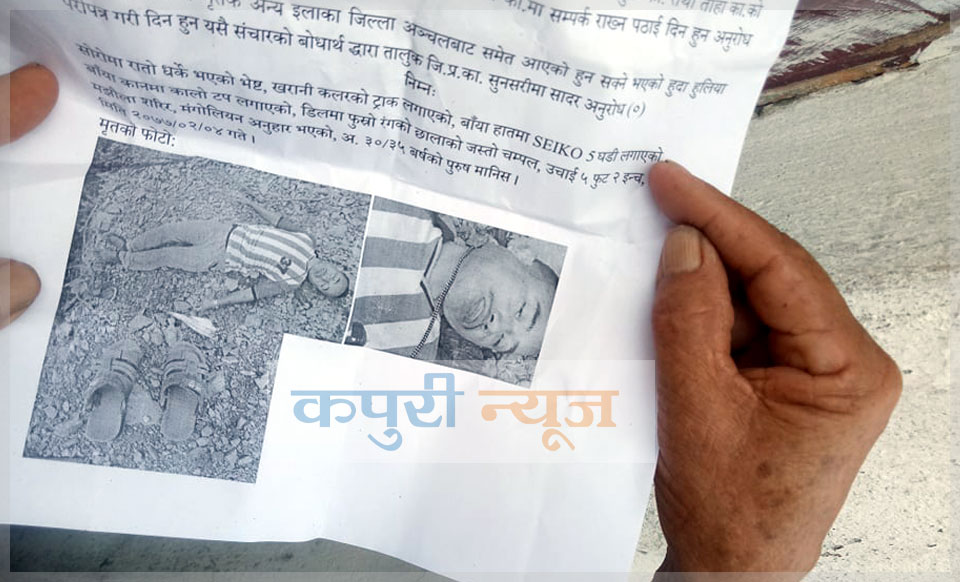 सम्पर्क राख्न पठाई दिन हुन अनुरोध
परिपत्र गरी दिन हुन यसै संचारको बोधार्थ द्धारा तालुक जि.प्र.का. सुनसरीमा सादर अनुरोध (०)
अन्य इलाका जिल्ला अञ्चलबाट समेत आएको हुन सक्ने भएको हुदा हुलिया
निम्न:
सोरोमा रातो धर्के भएको भेष्ट, खरानी कलरको ट्राक लगाएको, बाँया हातमा SEIKO 5 घडी लगाएको,
बाँया कानमा कालो टप लगाएको, डिलमा फुस्रो रंगको छालाको जस्तो चम्पल, उचाई ५ फुट २ इन्च,
मझौला शरिर, मंगोलियन अनुहार भएको, अ. ३०/३५ बर्षको पुरुष मानिस ।
मिति २०७७/०२/०४ गते ।
मृतको फोटो:
कपुरी न्यूज